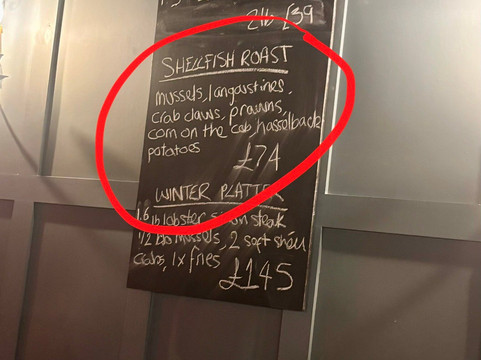 2lb £39
SHELLFISH ROAST
mussels, langoustines,
crab claws, prawns,
corn on the cob, hasselback
potatoes
£74
WINTER PLATTER
1.6 lb lobster steak
1/2 lb mussels, 2 soft shell
crabs, 1x fries
£145